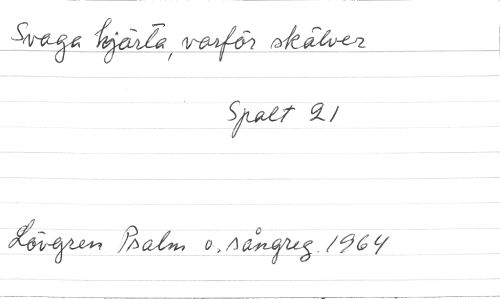 Svaga hjärta, varför skälver
Spalt 21
Lövgren Psalm o. sångreg. 1964